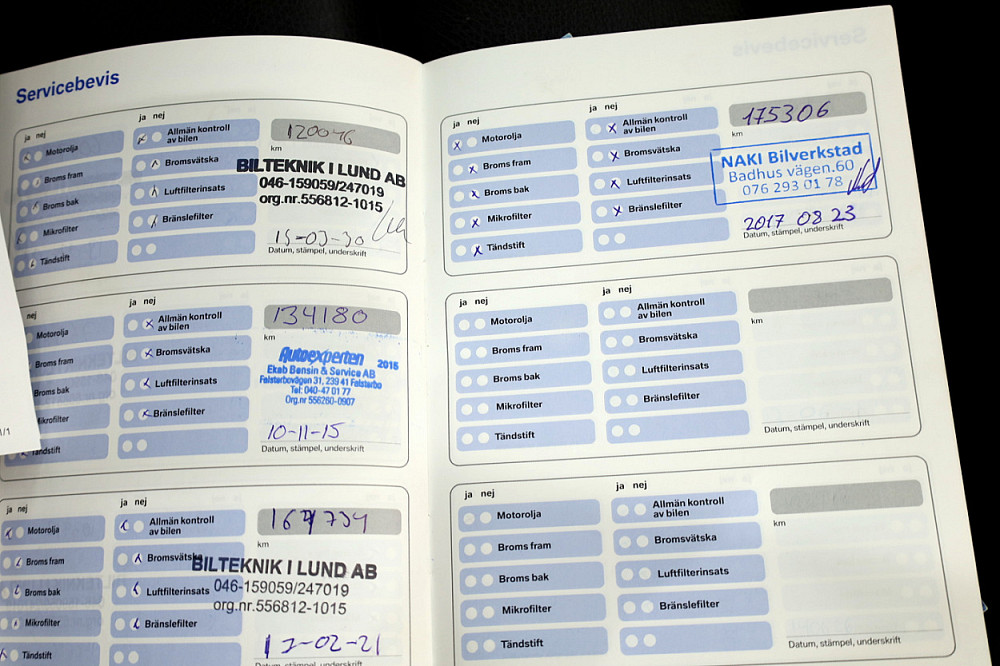 Servicebevis
ja nej
ja nej
Motorolja
Broms fram
Broms bak
Mikrofilter
Tändstift
Allmän kontroll
av bilen
Bromsvätska
Luftfilterinsats
Bränslefilter
120046
km
BILTEKNIK I LUND AB
046-159059/247019
org.nr.556812-1015
15-03-30
Datum, stämpel, underskrift
nej
ja nej
Motorolja
Broms fram
Broms bak
Mikrofilter
Tändstift
Allmän kontroll
av bilen
Bromsvätska
Luftfilterinsats
Bränslefilter
134180
km
Autoexperten 2015
Ekeb Bensin & Service AB
Falsterbovägen 31, 239 41 Falsterbo
Tel: 040-47 01 77
Org.nr 556260-0907
10-11-15
Datum, stämpel, underskrift
ja nej
ja nej
Motorolja
Broms fram
Broms bak
Mikrofilter
Tändstift
Allmän kontroll
av bilen
Bromsvätska
Luftfilterinsats
Bränslefilter
km
BILTEKNIK I LUND AB
046-159059/247019
org.nr.556812-1015
17-02-21
Datum, stämpel, underskrift
1/1
ja nej
ja nej
Motorolja
Broms fram
Broms bak
Mikrofilter
Tändstift
Allmän kontroll
av bilen
Bromsvätska
Luftfilterinsats
Bränslefilter
175306
km
NAKI Bilverkstad
Badhus vägen.60
076 293 01 78
2017 08 23
Datum, stämpel, underskrift
ja nej
ja nej
Motorolja
Broms fram
Broms bak
Mikrofilter
Tändstift
Allmän kontroll
av bilen
Bromsvätska
Luftfilterinsats
Bränslefilter
km
Datum, stämpel, underskrift
ja nej
ja nej
Motorolja
Broms fram
Broms bak
Mikrofilter
Tändstift
Allmän kontroll
av bilen
Bromsvätska
Luftfilterinsats
Bränslefilter
km
Datum, stämpel, underskrift